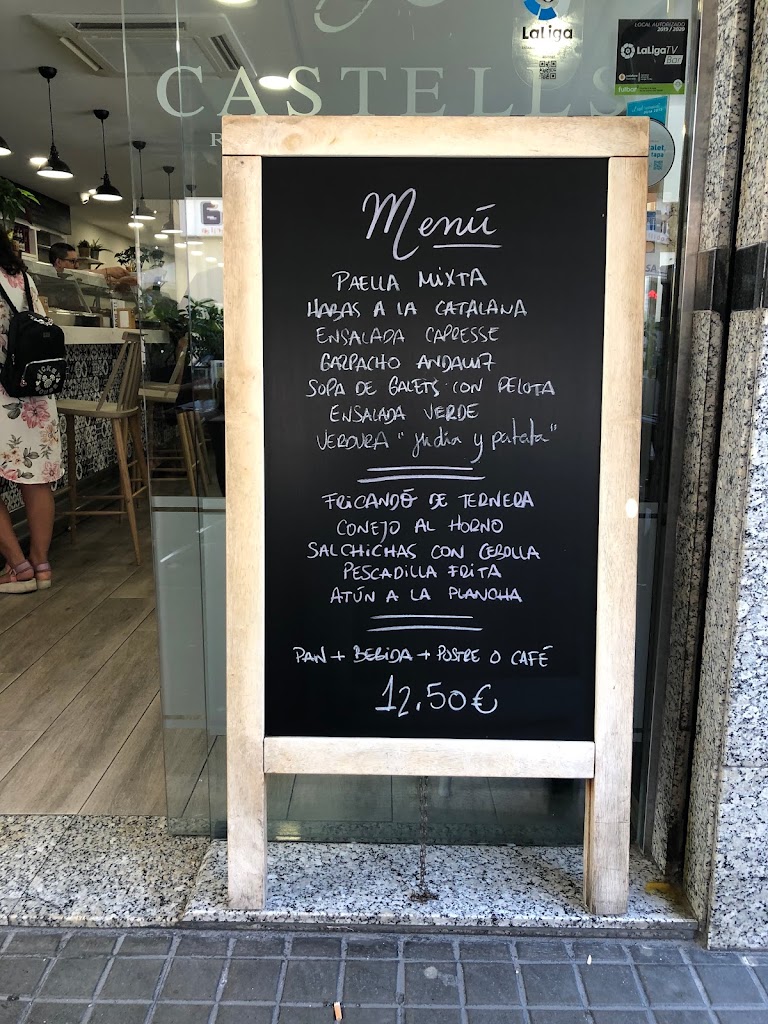 LaLiga
LOCAL AUTORIZADO
2019 / 2020
LaLigaTV
Bar
fulbar
CASTELLS
R
Menú
PAELLA MIXTA
HABAS A LA CATALANA
ENSALADA CAPRESSE
GAZPACHO ANDALUZ
SOPA DE GALETS CON PELOTA
ENSALADA VERDE
VERDURA "judía y patata"
FRICANDÓ DE TERNERA
CONEJO AL HORNO
SALCHICHAS CON CEBOLLA
PESCADILLA FRITA
ATÚN A LA PLANCHA
PAN + BEBIDA + POSTRE O CAFÉ
12,50€